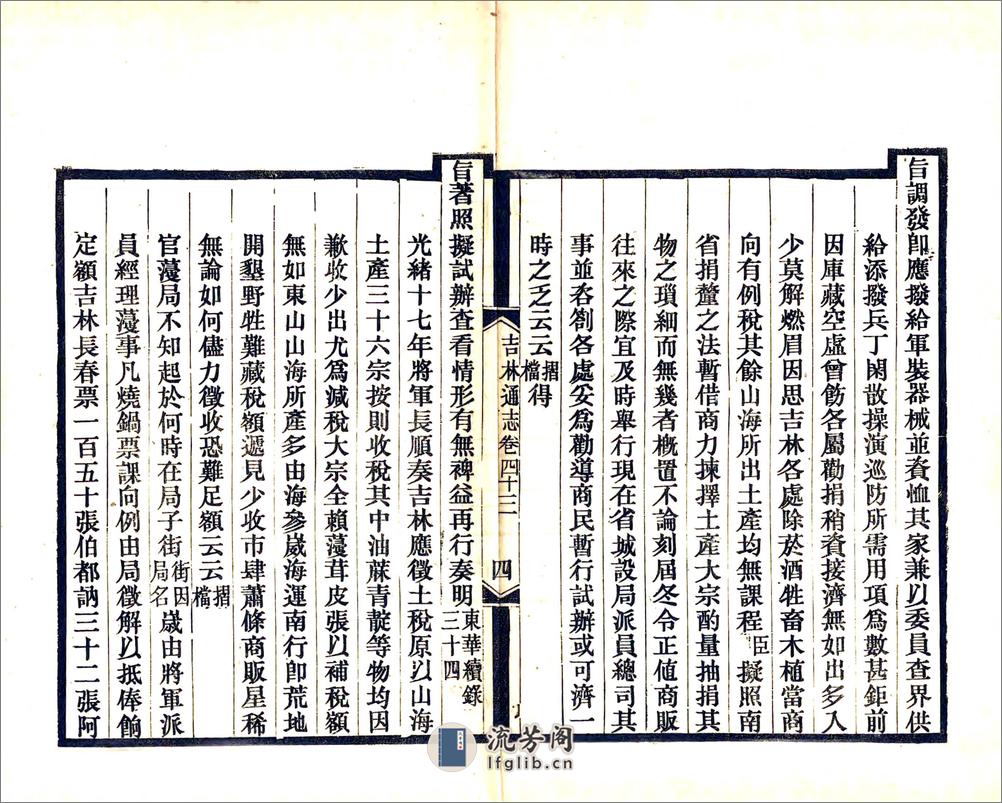 旨調發卽應撥給軍裝器械並資恤其家兼以委員查界供
給添撥兵丁閑散操演巡防所需用項爲數甚鉅前
因庫藏空虛曾飭各屬勸捐稍資接濟無如出多入
少莫解燃眉因思吉林各處除菸酒牲畜木植當商
向有例稅其餘山海所出土產均無課程臣擬照南
省捐釐之法暫借商力揀擇土產大宗酌量抽捐其
物之瑣細而無幾者槪置不論刻屆冬令正値商販
往來之際宜及時舉行現在省城設局派員總司其
事並咨劄各處妥爲勸導商民暫行試辦或可濟一
時之乏云云檔摺得
吉林通志卷四十三
四
旨著照擬試辦查看情形有無裨益再行奏明東華續錄三十四
光緖十七年將軍長順奏吉林應徵土稅原以山海
土產三十六宗按則收稅其中油蔴靑靛等物均因
歉收少出尤爲減稅大宗全賴蓡茸皮張以補稅額
無如東山山海所產多由海參崴海運南行卽荒地
開墾野牲難藏稅額遞見少收市肆蕭條商販星稀
無論如何儘力徵收恐難足額云云檔摺
官蓡局不知起於何時在局子街街因局名歲由將軍派
員經理蓡事凡燒鍋票課向例由局徵解以抵俸餉
定額吉林長春票一百五十張伯都訥三十二張阿
流芳阁
lfglib.cn